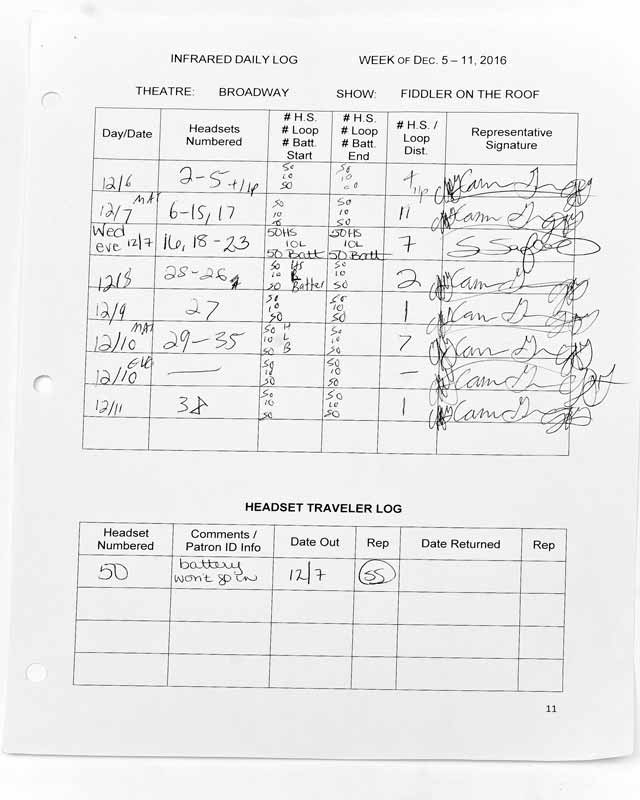 INFRARED DAILY LOG WEEK OF DEC. 5 – 11, 2016
THEATRE: BROADWAY SHOW: FIDDLER ON THE ROOF
Day/Date Headsets Numbered # H.S. # Loop # Batt. Start # H.S. # Loop # Batt. End # H.S. / Loop Dist. Representative Signature
12/6 2-5 +1 lp 50 10 50 50 10
12/7 MAT 6-15, 17 50 10 50 10 50 11
Wed eve 12/7 16, 18-23 50HS 10L 50 Batt 50HS 10L 50 Batt 7
12/8 50 HS 10 50 10 50 2
12/9 27 50 10 50 50 10 50 1
12/10 MAT 29-35 50 H 10 L 50 B 50 10 50 7
12/10 EVE — 50 10 50 50 10 50 –
12/11 38 50 10 50 50 10 50 1
HEADSET TRAVELER LOG
Headset Numbered Comments / Patron ID Info Date Out Rep Date Returned Rep
50 battery won't go in 12/7 SS
11